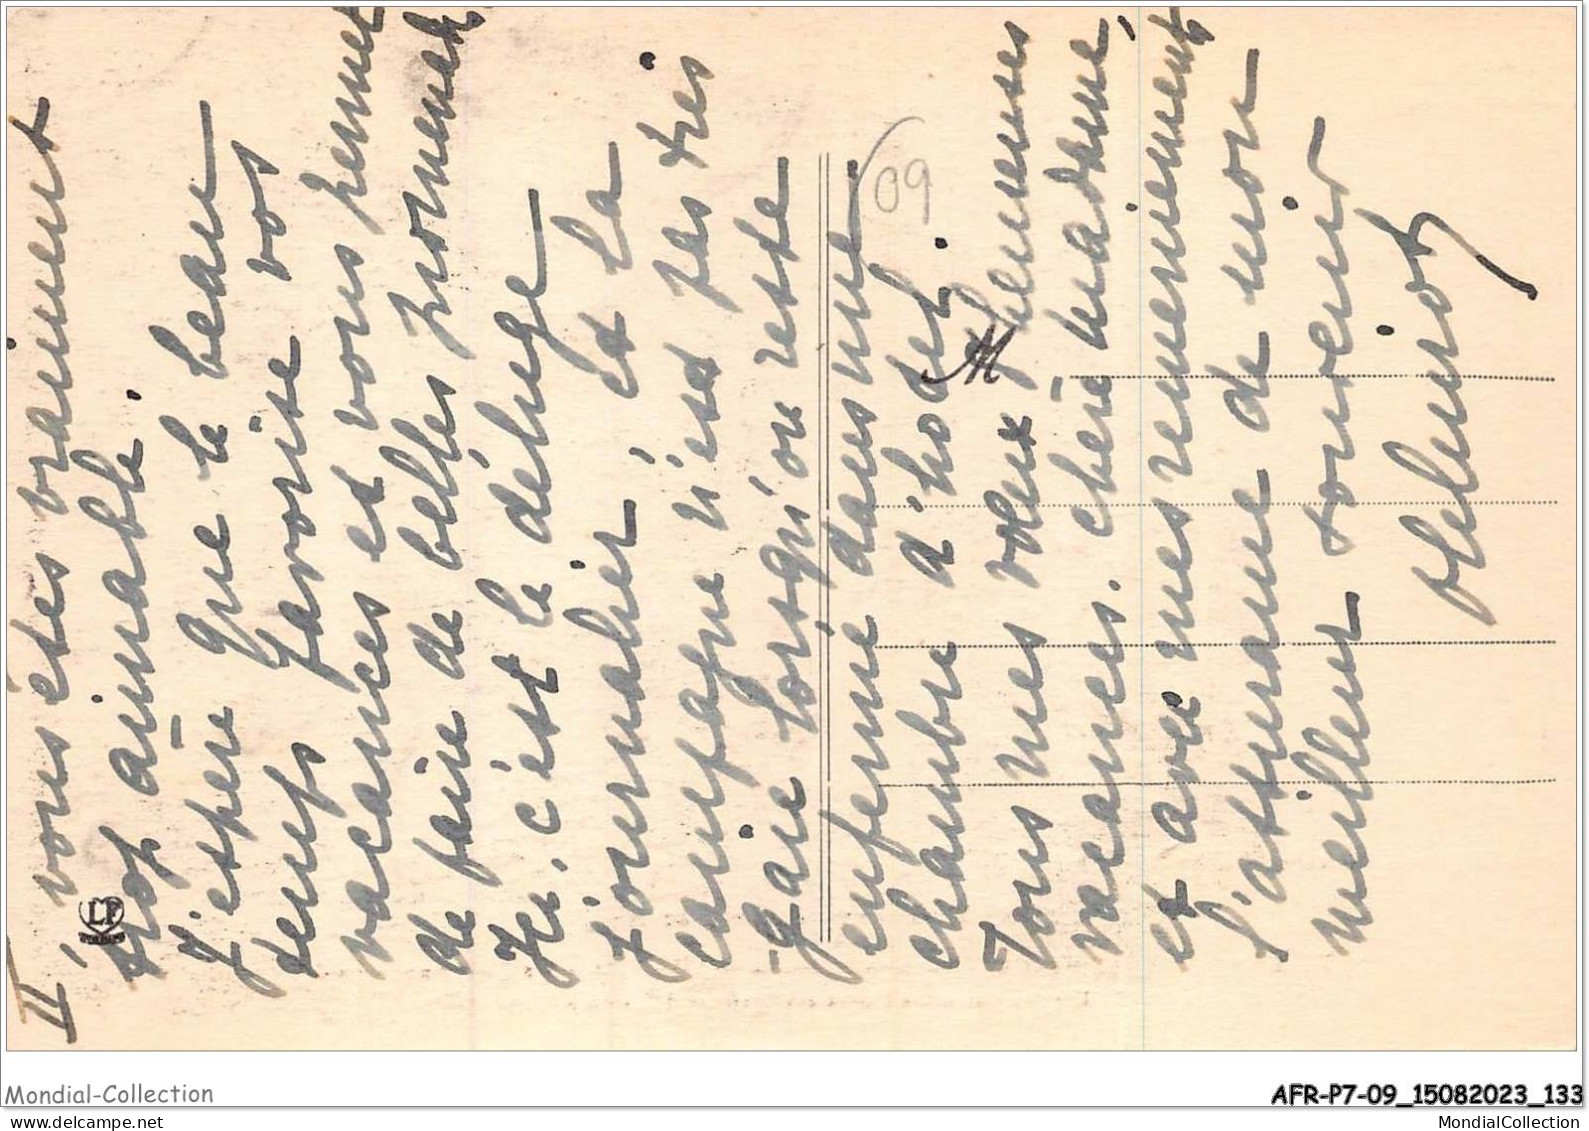 II
vous êtes vraiment
trop aimable.
J'espère que le beau
temps favorise vos
vacances et vous permet
de faire de belles promenades
Ici, c'est le déluge
journalier, et la
campagne n'est pas très
gaie lorsqu'on reste
enfermé dans une
chambre d'hôtel.
Tous mes vœux, heureuses
vacances, chère madame,
et avec mes remerciements,
l'assurance de mon
meilleur souvenir
M
09
LF
Mondial-Collection
AFR-P7-09_15082023_133
www.delcampe.net
MondialCollection